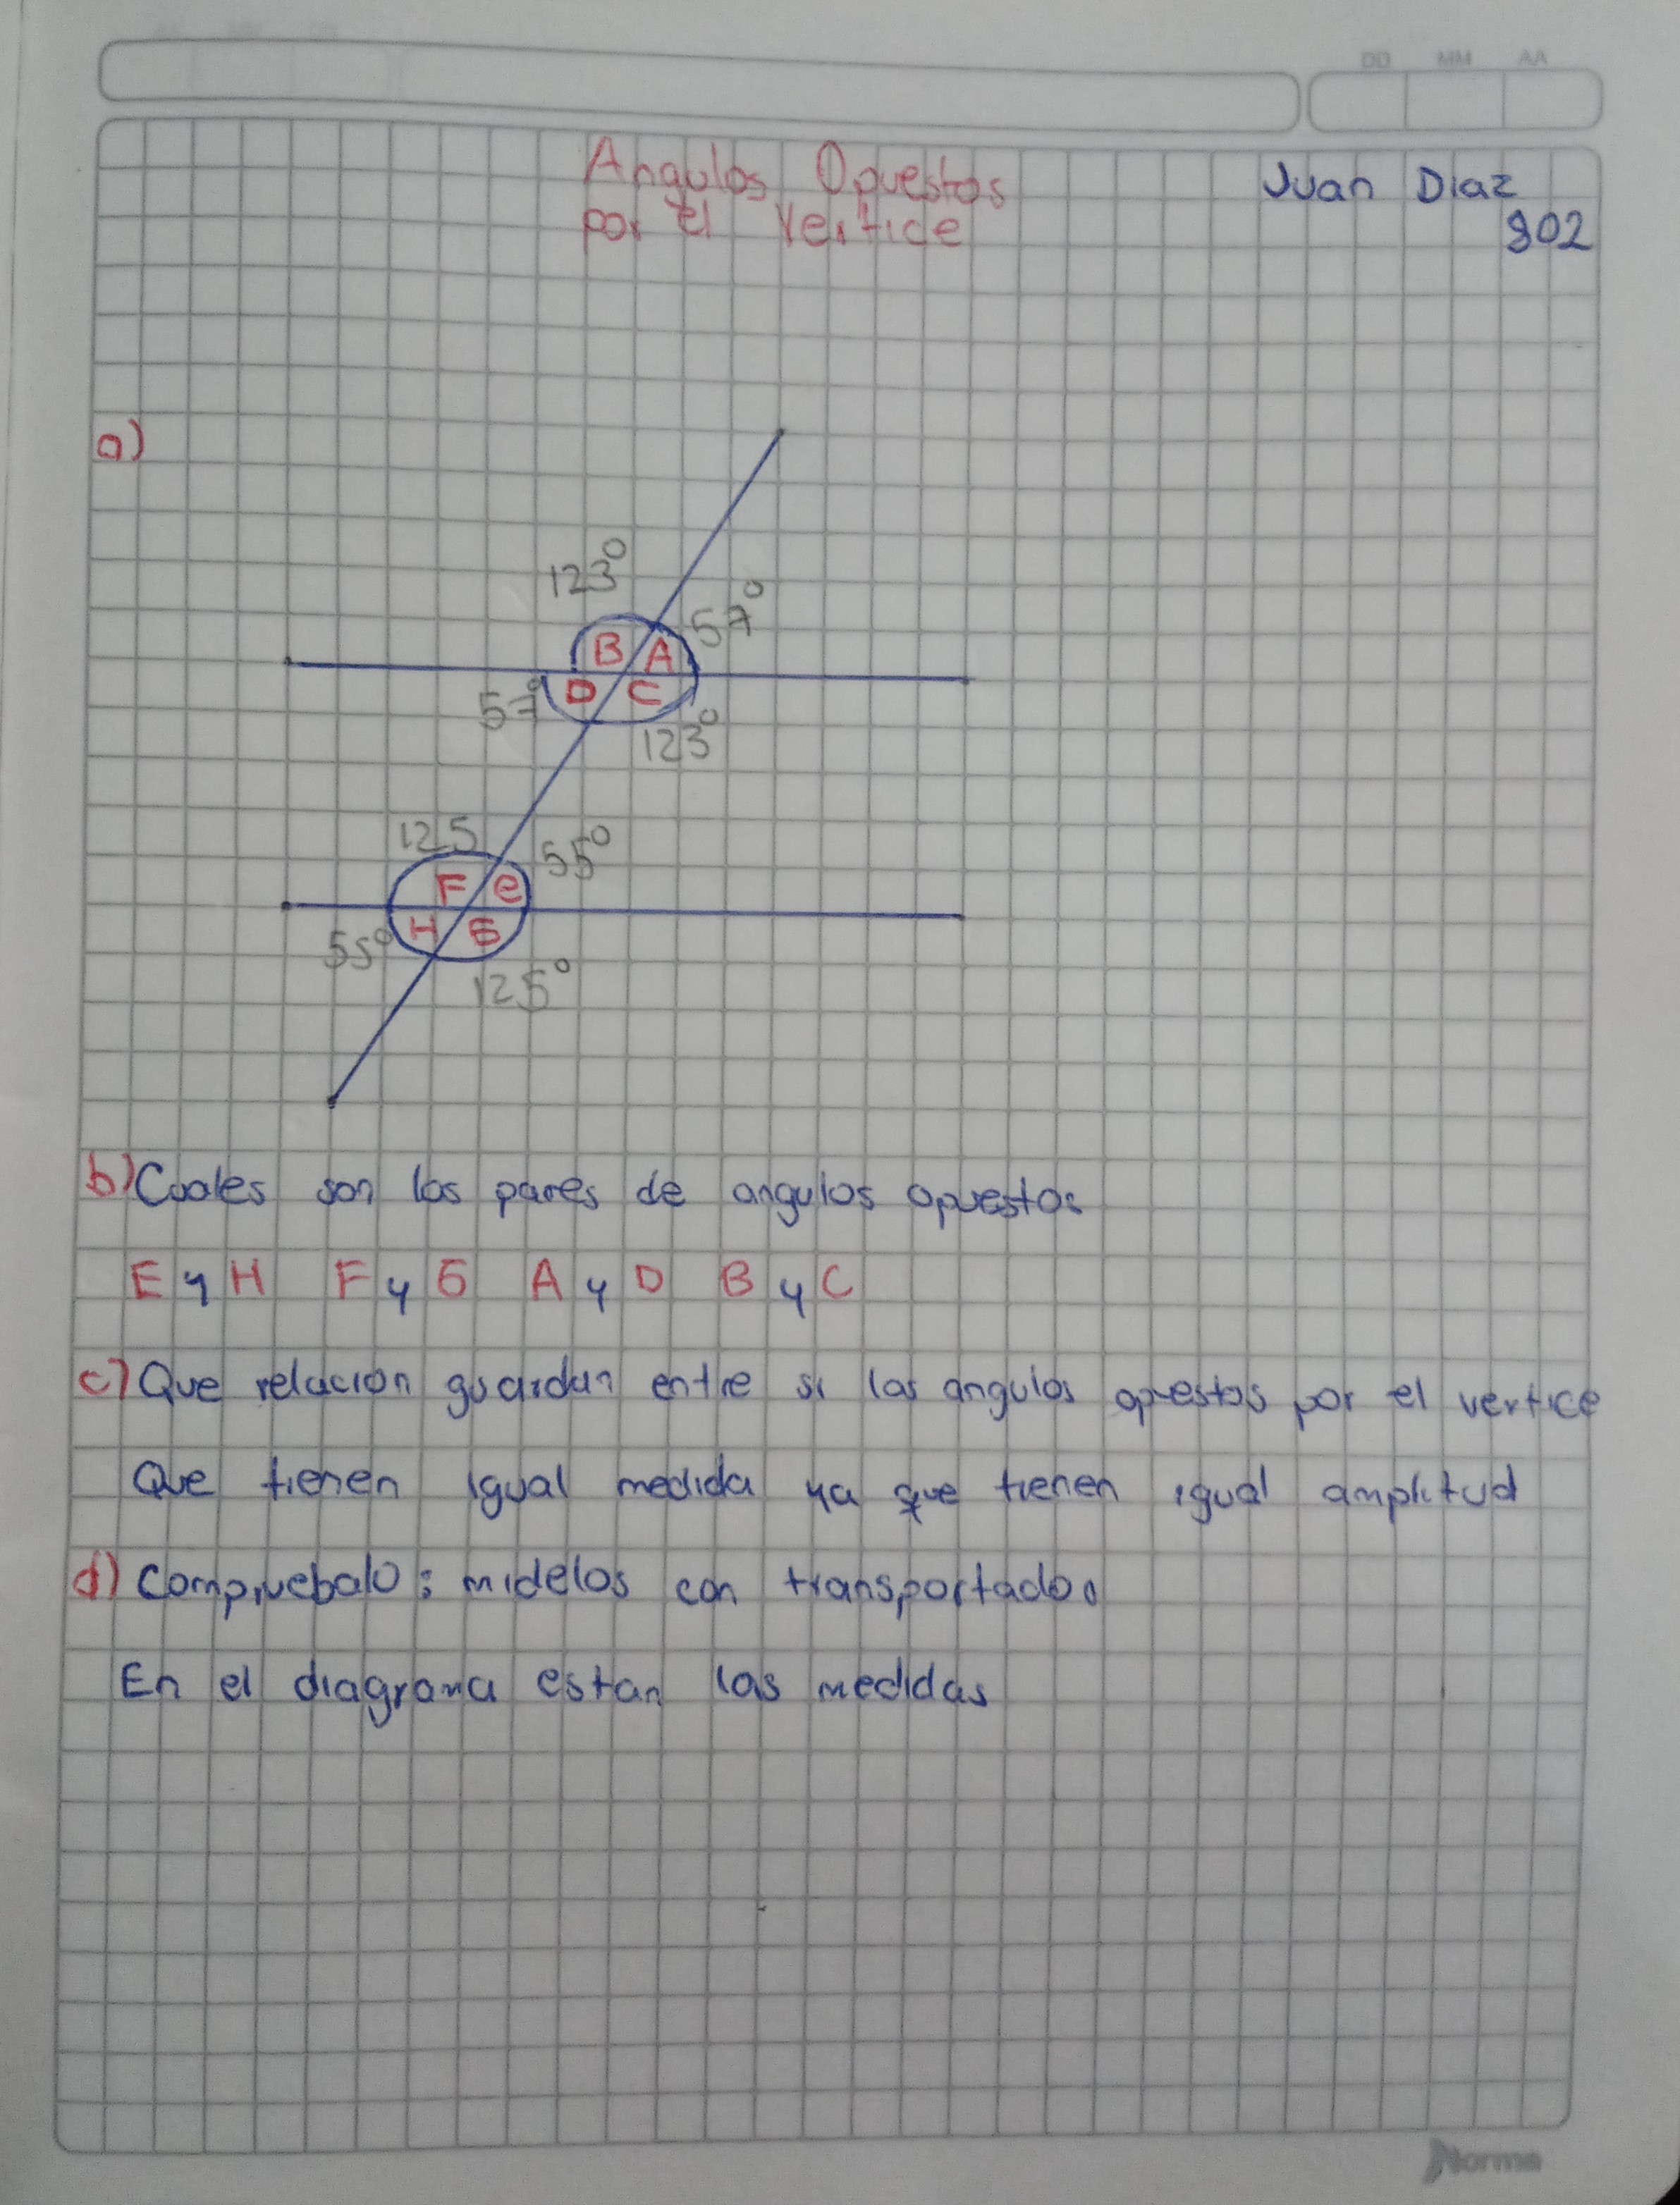 DD MM AA
Angulos Opuestos
por el Vertice
Juan Diaz
802
a)
123°
57°
B A
D C
57°
123°
125
55°
F e
H G
55°
125°
b) Cuales son los pares de angulos opuestos
E y H F y G A y D B y C
c) Que relacion guardan entre si los angulos opuestos por el vertice
Que tienen igual medida ya que tienen igual amplitud
d) Compruebalo: midelos con transportador
En el diagrama estan las medidas
Norma